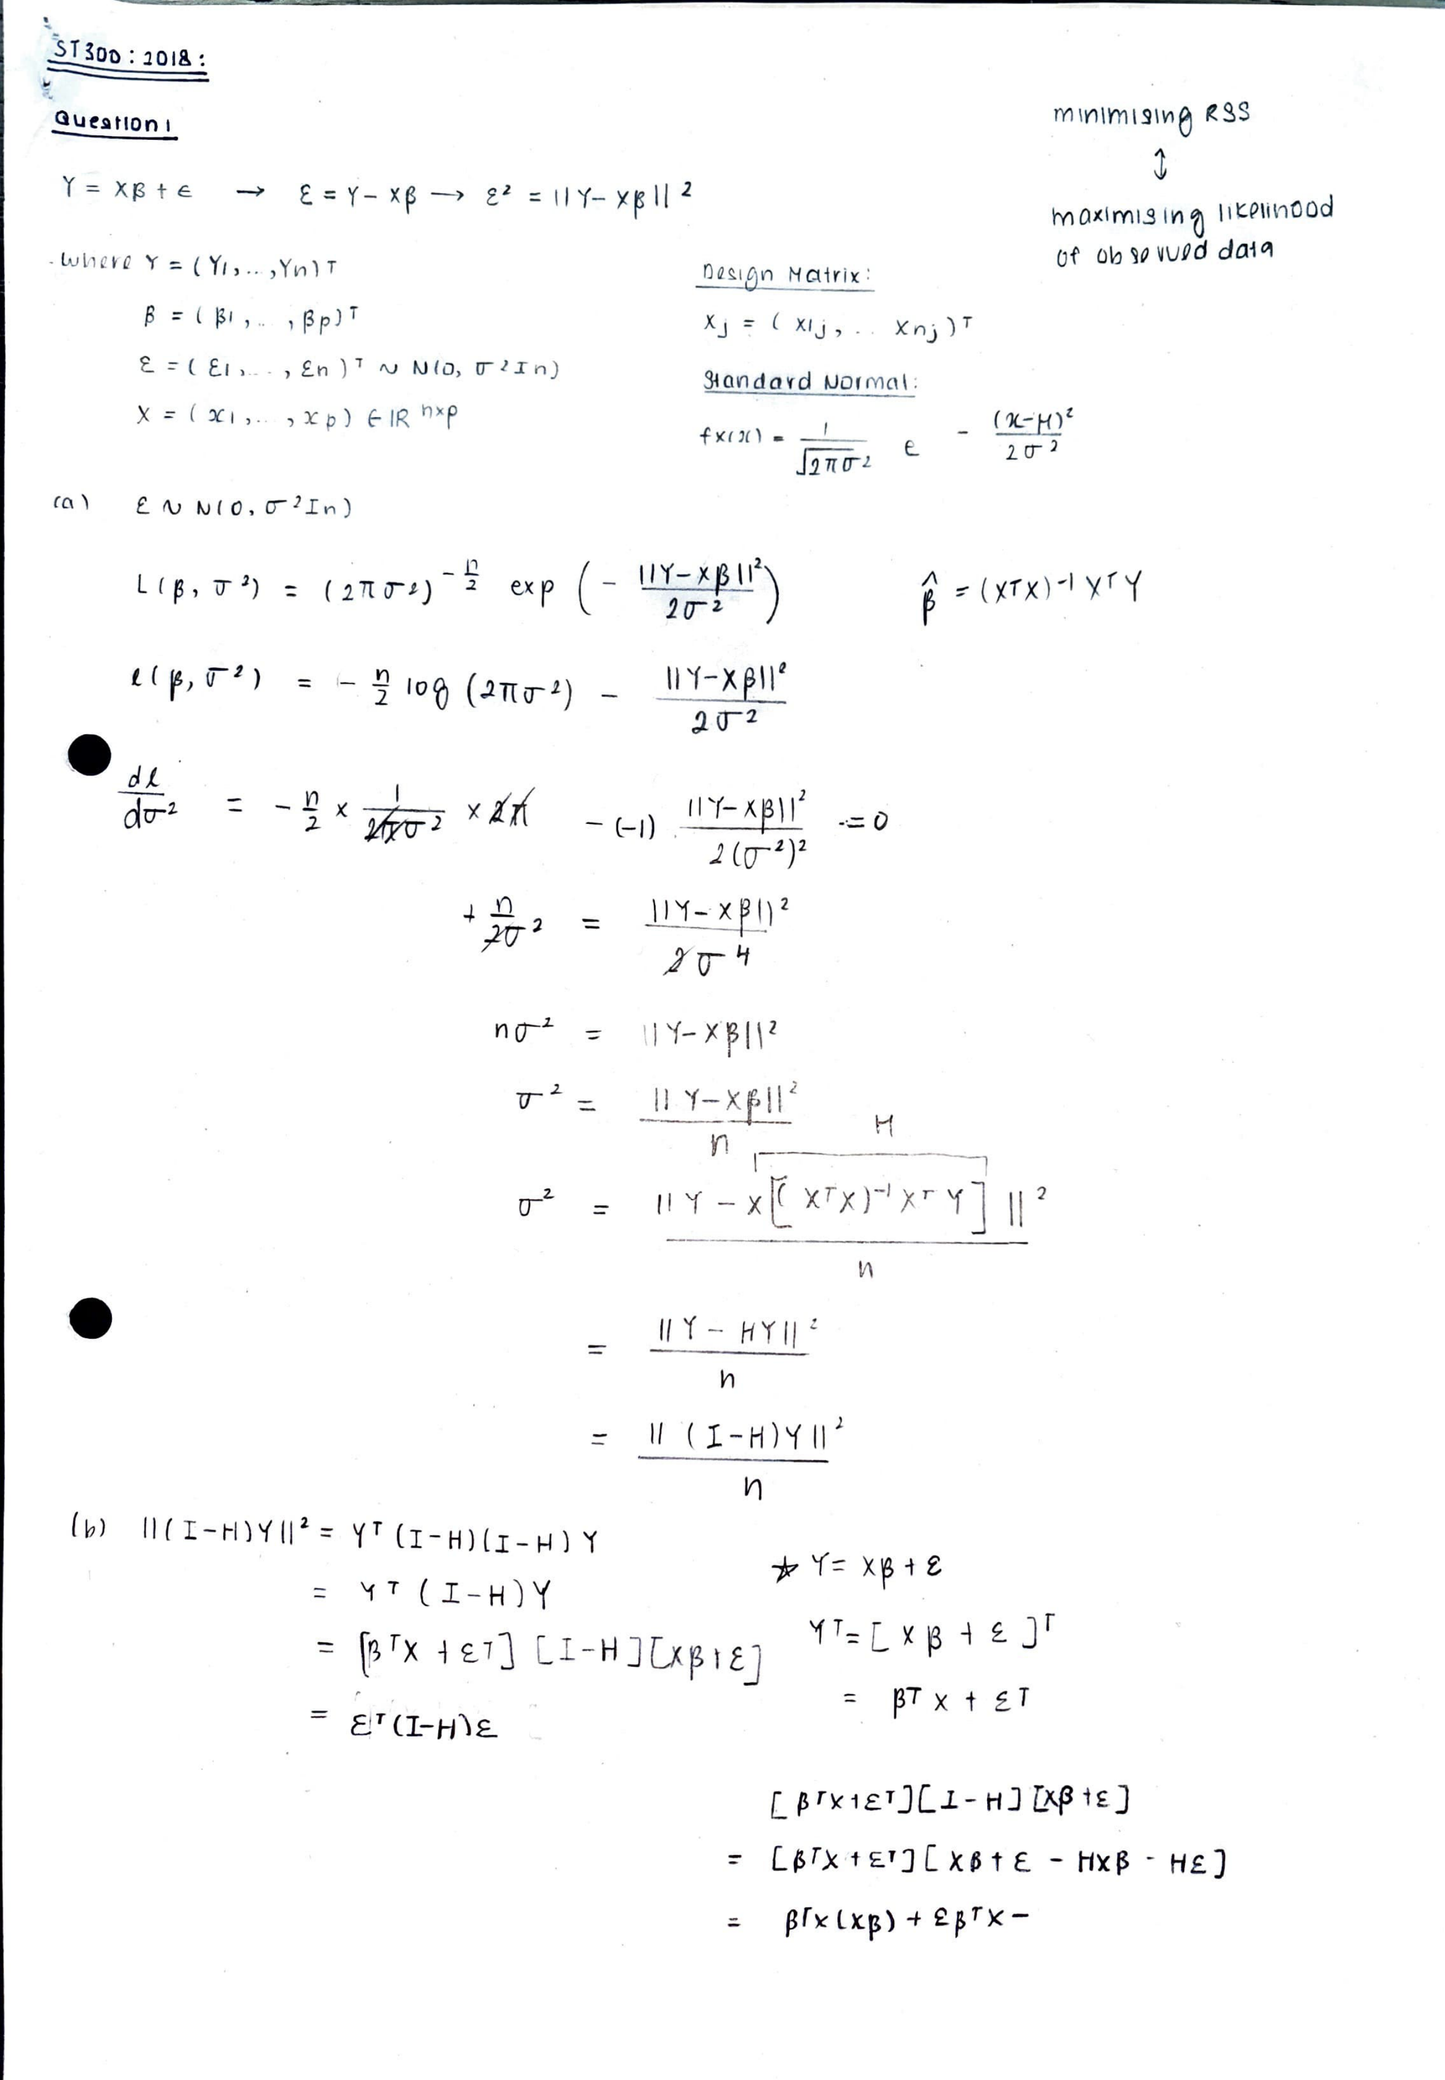 ST300 : 2018 :
Question 1
minimising RSS
↕
maximising likelihood
of observed data
Y = Xβ + ϵ → ε = Y - Xβ → ε² = ||Y - Xβ||²
where Y = (Y1, .., Yn)ᵀ
β = (β1, .. , βp)ᵀ
ε = (ε1, ... , εn)ᵀ ~ N(0, σ²In)
X = (x1, .. , xp) ∈ ℝ ⁿˣᵖ
Design Matrix:
Xj = (x1j, .. xnj)ᵀ
Standard Normal:
fx(x) = 1/√2πσ² e - (x-μ)²/2σ²
(a) ε ~ N(0, σ²In)
L(β, σ²) = (2πσ²)^(-n/2) exp ( - ||Y-Xβ||²/2σ² )
β̂ = (XᵀX)⁻¹XᵀY
ℓ(β, σ²) = - n/2 log (2πσ²) - ||Y-Xβ||²/2σ²
dℓ/dσ² = - n/2 × 1/2πσ² × 2π - (-1) ||Y-Xβ||²/2(σ²)² = 0
+ n/2σ² = ||Y-Xβ||²/2σ⁴
nσ² = ||Y-Xβ||²
σ² = ||Y-Xβ||²/n
H
σ² = ||Y - X[(XᵀX)⁻¹XᵀY]||²/n
= ||Y - HY||²/n
= ||(I-H)Y||²/n
(b) ||(I-H)Y||² = Yᵀ(I-H)(I-H)Y
= Yᵀ(I-H)Y
= [βᵀX + εᵀ][I-H][Xβ+ε]
= εᵀ(I-H)ε
☆ Y = Xβ + ε
Yᵀ = [Xβ + ε]ᵀ
= βᵀX + εᵀ
[βᵀX+εᵀ][I-H][Xβ+ε]
= [βᵀX+εᵀ][Xβ+ε - HXβ - Hε]
= βᵀX(Xβ) + εβᵀX -